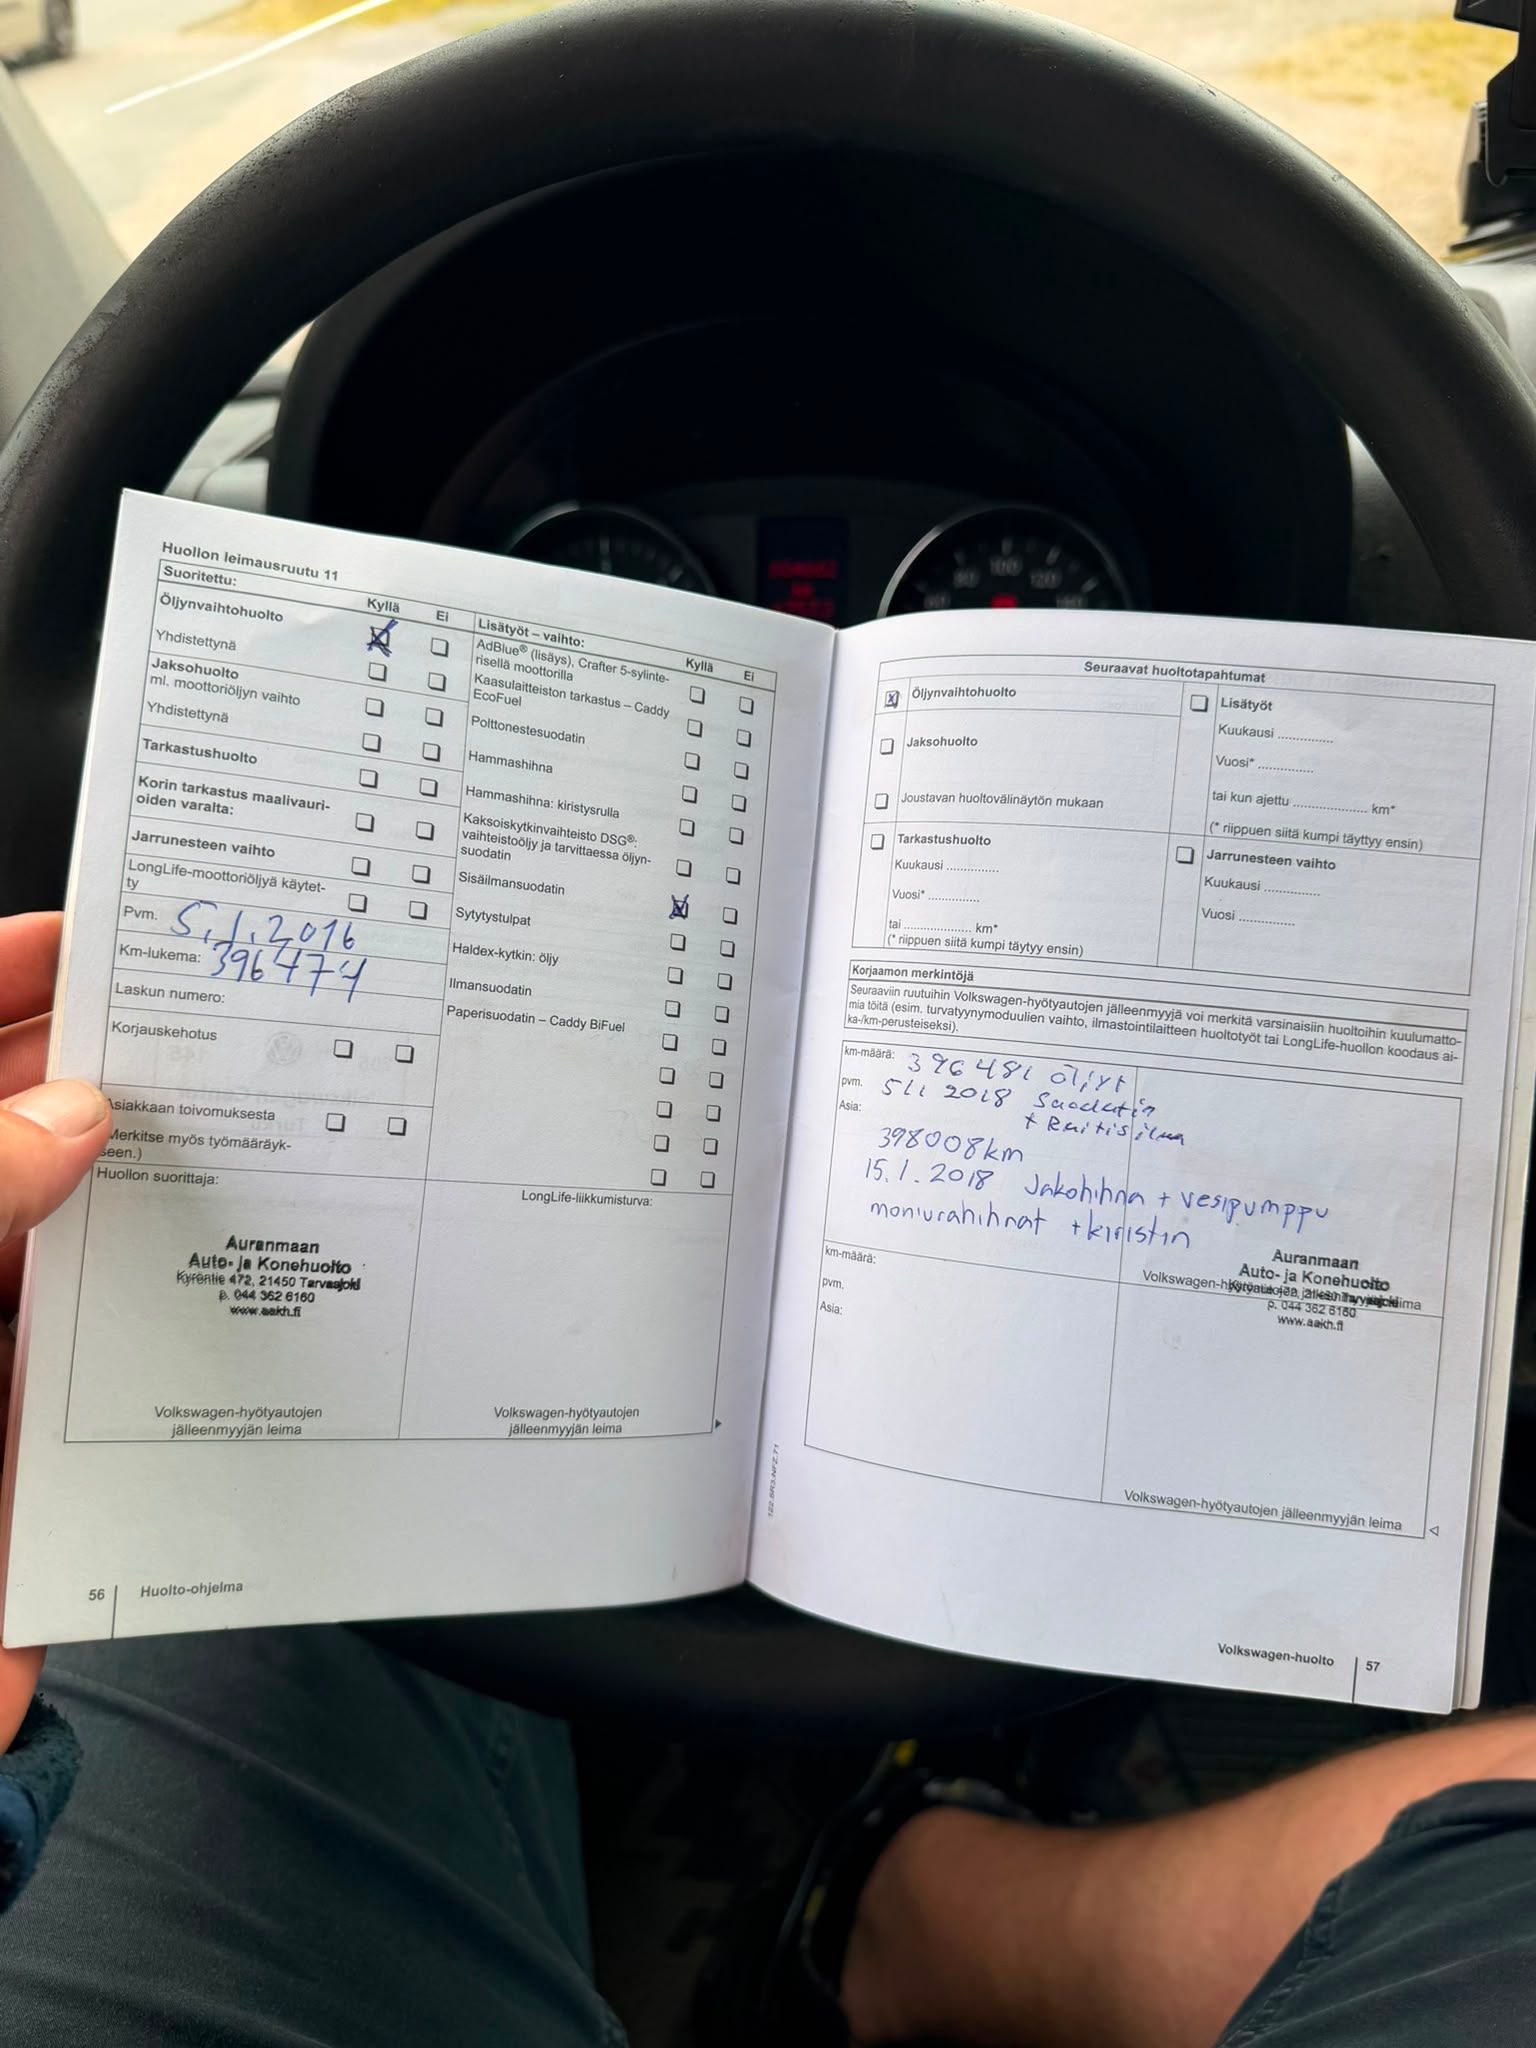 Huollon leimausruutu 11
Suoritettu:
Kyllä Ei
Öljynvaihtohuolto
Yhdistettynä
Jaksohuolto
ml. moottoriöljyn vaihto
Yhdistettynä
Tarkastushuolto
Korin tarkastus maalivauri-
oiden varalta:
Jarrunesteen vaihto
LongLife-moottoriöljyä käytet-
ty
Pvm. 5.1.2016
Km-lukema: 396477
Laskun numero:
Korjauskehotus
Asiakkaan toivomuksesta
(Merkitse myös työmääräyk-
seen.)
Huollon suorittaja:
Auranmaan
Auto- ja Konehuolto
Kyröntie 472, 21450 Tarvasjoki
p. 044 362 6160
www.aakh.fi
Volkswagen-hyötyautojen
jälleenmyyjän leima
Lisätyöt – vaihto:
Kyllä Ei
AdBlue® (lisäys), Crafter 5-sylinte-
risellä moottorilla
Kaasulaitteiston tarkastus – Caddy
EcoFuel
Polttonestesuodatin
Hammashihna
Hammashihna: kiristysrulla
Kaksoiskytkinvaihteisto DSG®:
vaihteistoöljy ja tarvittaessa öljyn-
suodatin
Sisäilmansuodatin
Sytytystulpat
Haldex-kytkin: öljy
Ilmansuodatin
Paperisuodatin – Caddy BiFuel
LongLife-liikkumisturva:
Volkswagen-hyötyautojen
jälleenmyyjän leima
56 Huolto-ohjelma
Seuraavat huoltotapahtumat
Öljynvaihtohuolto
Jaksohuolto
Joustavan huoltovälinäytön mukaan
Tarkastushuolto
Kuukausi ...............
Vuosi* ...............
tai .................... km*
(* riippuen siitä kumpi täytyy ensin)
Lisätyöt
Kuukausi ...............
Vuosi* ...............
tai kun ajettu .................... km*
(* riippuen siitä kumpi täyttyy ensin)
Jarrunesteen vaihto
Kuukausi ...............
Vuosi ...............
Korjaamon merkintöjä
Seuraaviin ruutuihin Volkswagen-hyötyautojen jälleenmyyjä voi merkitä varsinaisiin huoltoihin kuulumatto-
mia töitä (esim. turvatyynymoduulien vaihto, ilmastointilaitteen huoltotyöt tai LongLife-huollon koodaus ai-
ka-/km-perusteiseksi).
km-määrä: 396481 öljyt
pvm. 5/1 2018 Suodatin
Asia: + Raitisilma
398008km
15.1.2018 Jakohihna + vesipumppu
moniurahihnat + kiristin
Auranmaan
Auto- ja Konehuolto
Volkswagen-hyötyautojen jälleenmyyjän leima
Kyröntie 472, 21450 Tarvasjoki
p. 044 362 6160
www.aakh.fi
km-määrä:
pvm.
Asia:
Volkswagen-hyötyautojen jälleenmyyjän leima
122.5R3.NFZ.71
Volkswagen-huolto 57